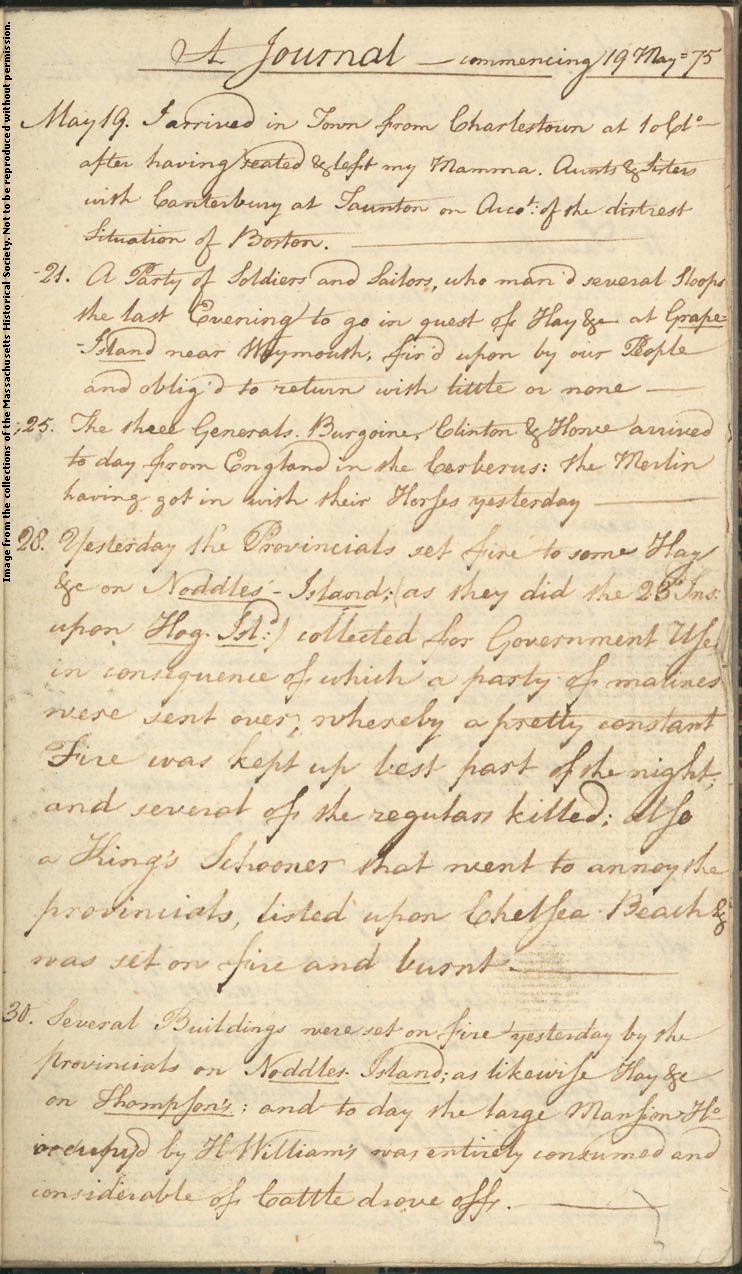 A Journal — commencing 19 May = 75
May 19. I arrived in Town from Charlestown at 1 oCl.º —
after having seated & left my Mamma. Aunts & Sisters
with Canterbury at Taunton on Acco.t: of the distrest
Situation of Boston. —
-21. A Party of Soldiers and Sailors, who man'd several Sloops
the last Evening to go in quest of Hay &c at Grape-
-Island near Weymouth, fir'd upon by our People
and oblig'd to return with little or none —
25. The three Generals. Burgoine, Clinton & Howe arrived
to day from England in the Cerberus: the Merlin
having got in with their Horses yesterday —
28. Yesterday the Provincials set fire to some Hay
&c on Noddles-Island; (as they did the 23d Ins:
upon Hog. Isld:) collected for Government Use,
in consequence of which a party of marines
were sent over, whereby a pretty constant
Fire was kept up best part of the night;
and several of the regulars killed; also
a King's Schooner that went to annoy the
provincials, listed upon Chelsea Beach &
was set on fire and burnt. —
30. Several Buildings were set on fire yesterday by the
provincials on Noddles Island; as likewise Hay &c
on Thompson's: and to day the large Mansion Hº
occupy'd by H Williams was entirely consumed and
considerable of Cattle drove off. —
Image from the collections of the Massachusetts Historical Society. Not to be reproduced without permission.